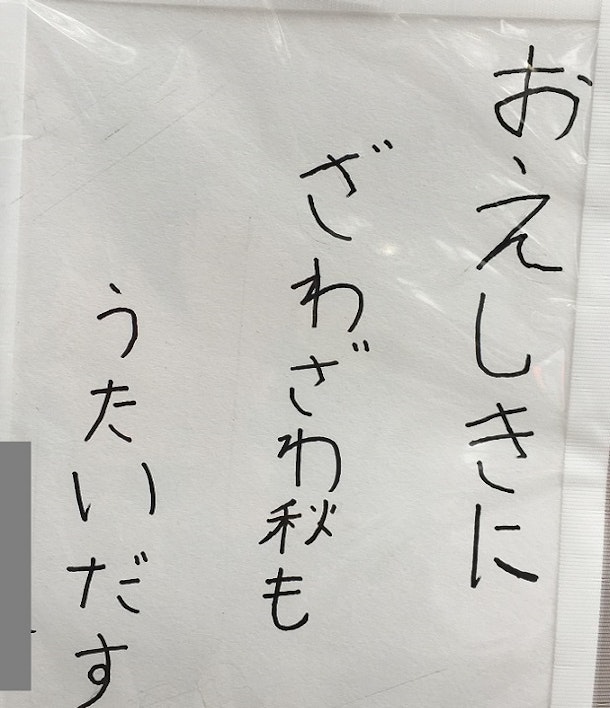 おえしきに
ざわざわ秋も
うたいだす